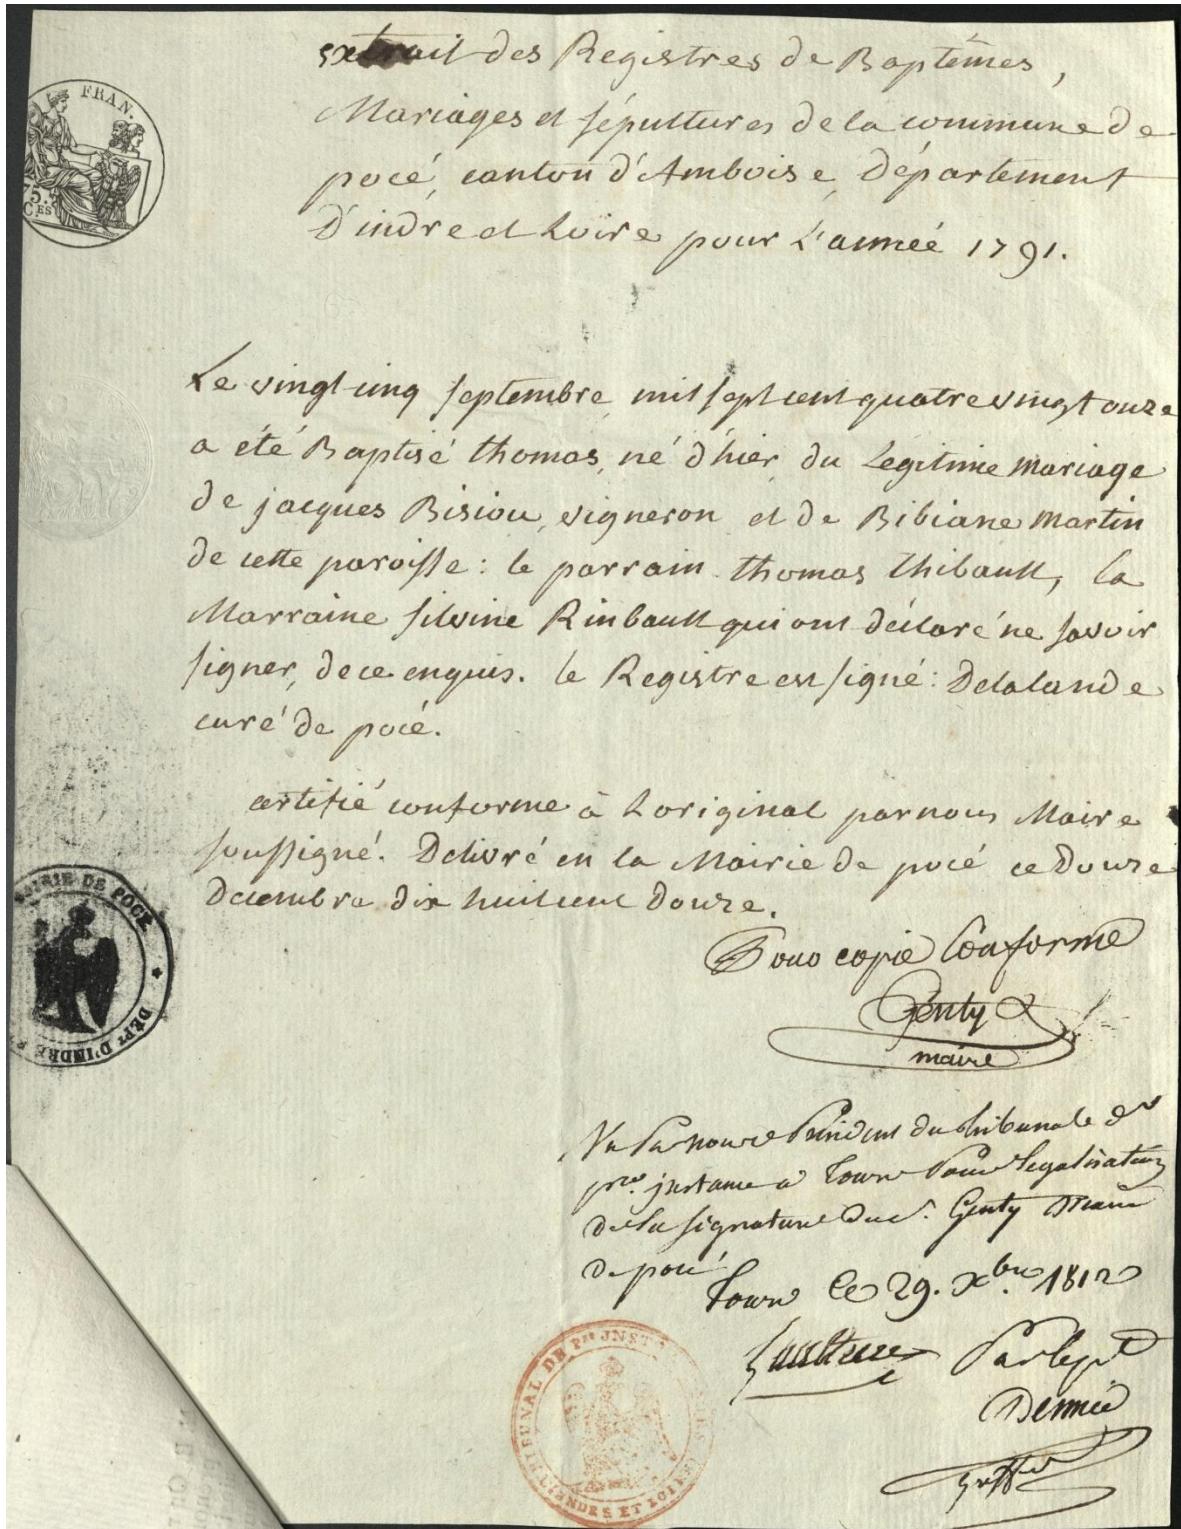 extrait des Registres de Baptêmes,
Mariages et sépultures de la commune de
pocé, canton d'Amboise, département
D'indre et Loire pour L'anneé 1791.
FRAN.
75.
CES
Le vingt-cinq septembre mil sept cent quatre vingt onze
a été Baptisé thomas, né d'hier, du Légitime mariage
de jacques Bisiou, vigneron et de Bibiane martin
de cette paroisse : le parrain thomas thibault, la
Marraine silvine Rimbault qui ont déclaré ne savoir
signer, de ce enquis. le Registre est signé : Delalande
curé de pocé.
certifié conforme à L'original par nous Maire
soussigné. Délivré en la Mairie de pocé ce Douze
Décembre dix huit cent Douze.
MAIRIE DE POCÉ
DÉPT D'INDRE
Pour copie Conforme
Genty
maire
Vu Par nous Président du tribunal de
pre. instance a Tours Pour Legalisation
de la signature du sr. Genty Maire
de pocé
Tours Le 29. Xbre. 1812
TRIBUNAL DE PRE INST
D'INDRE ET LOIRE
Par le pt